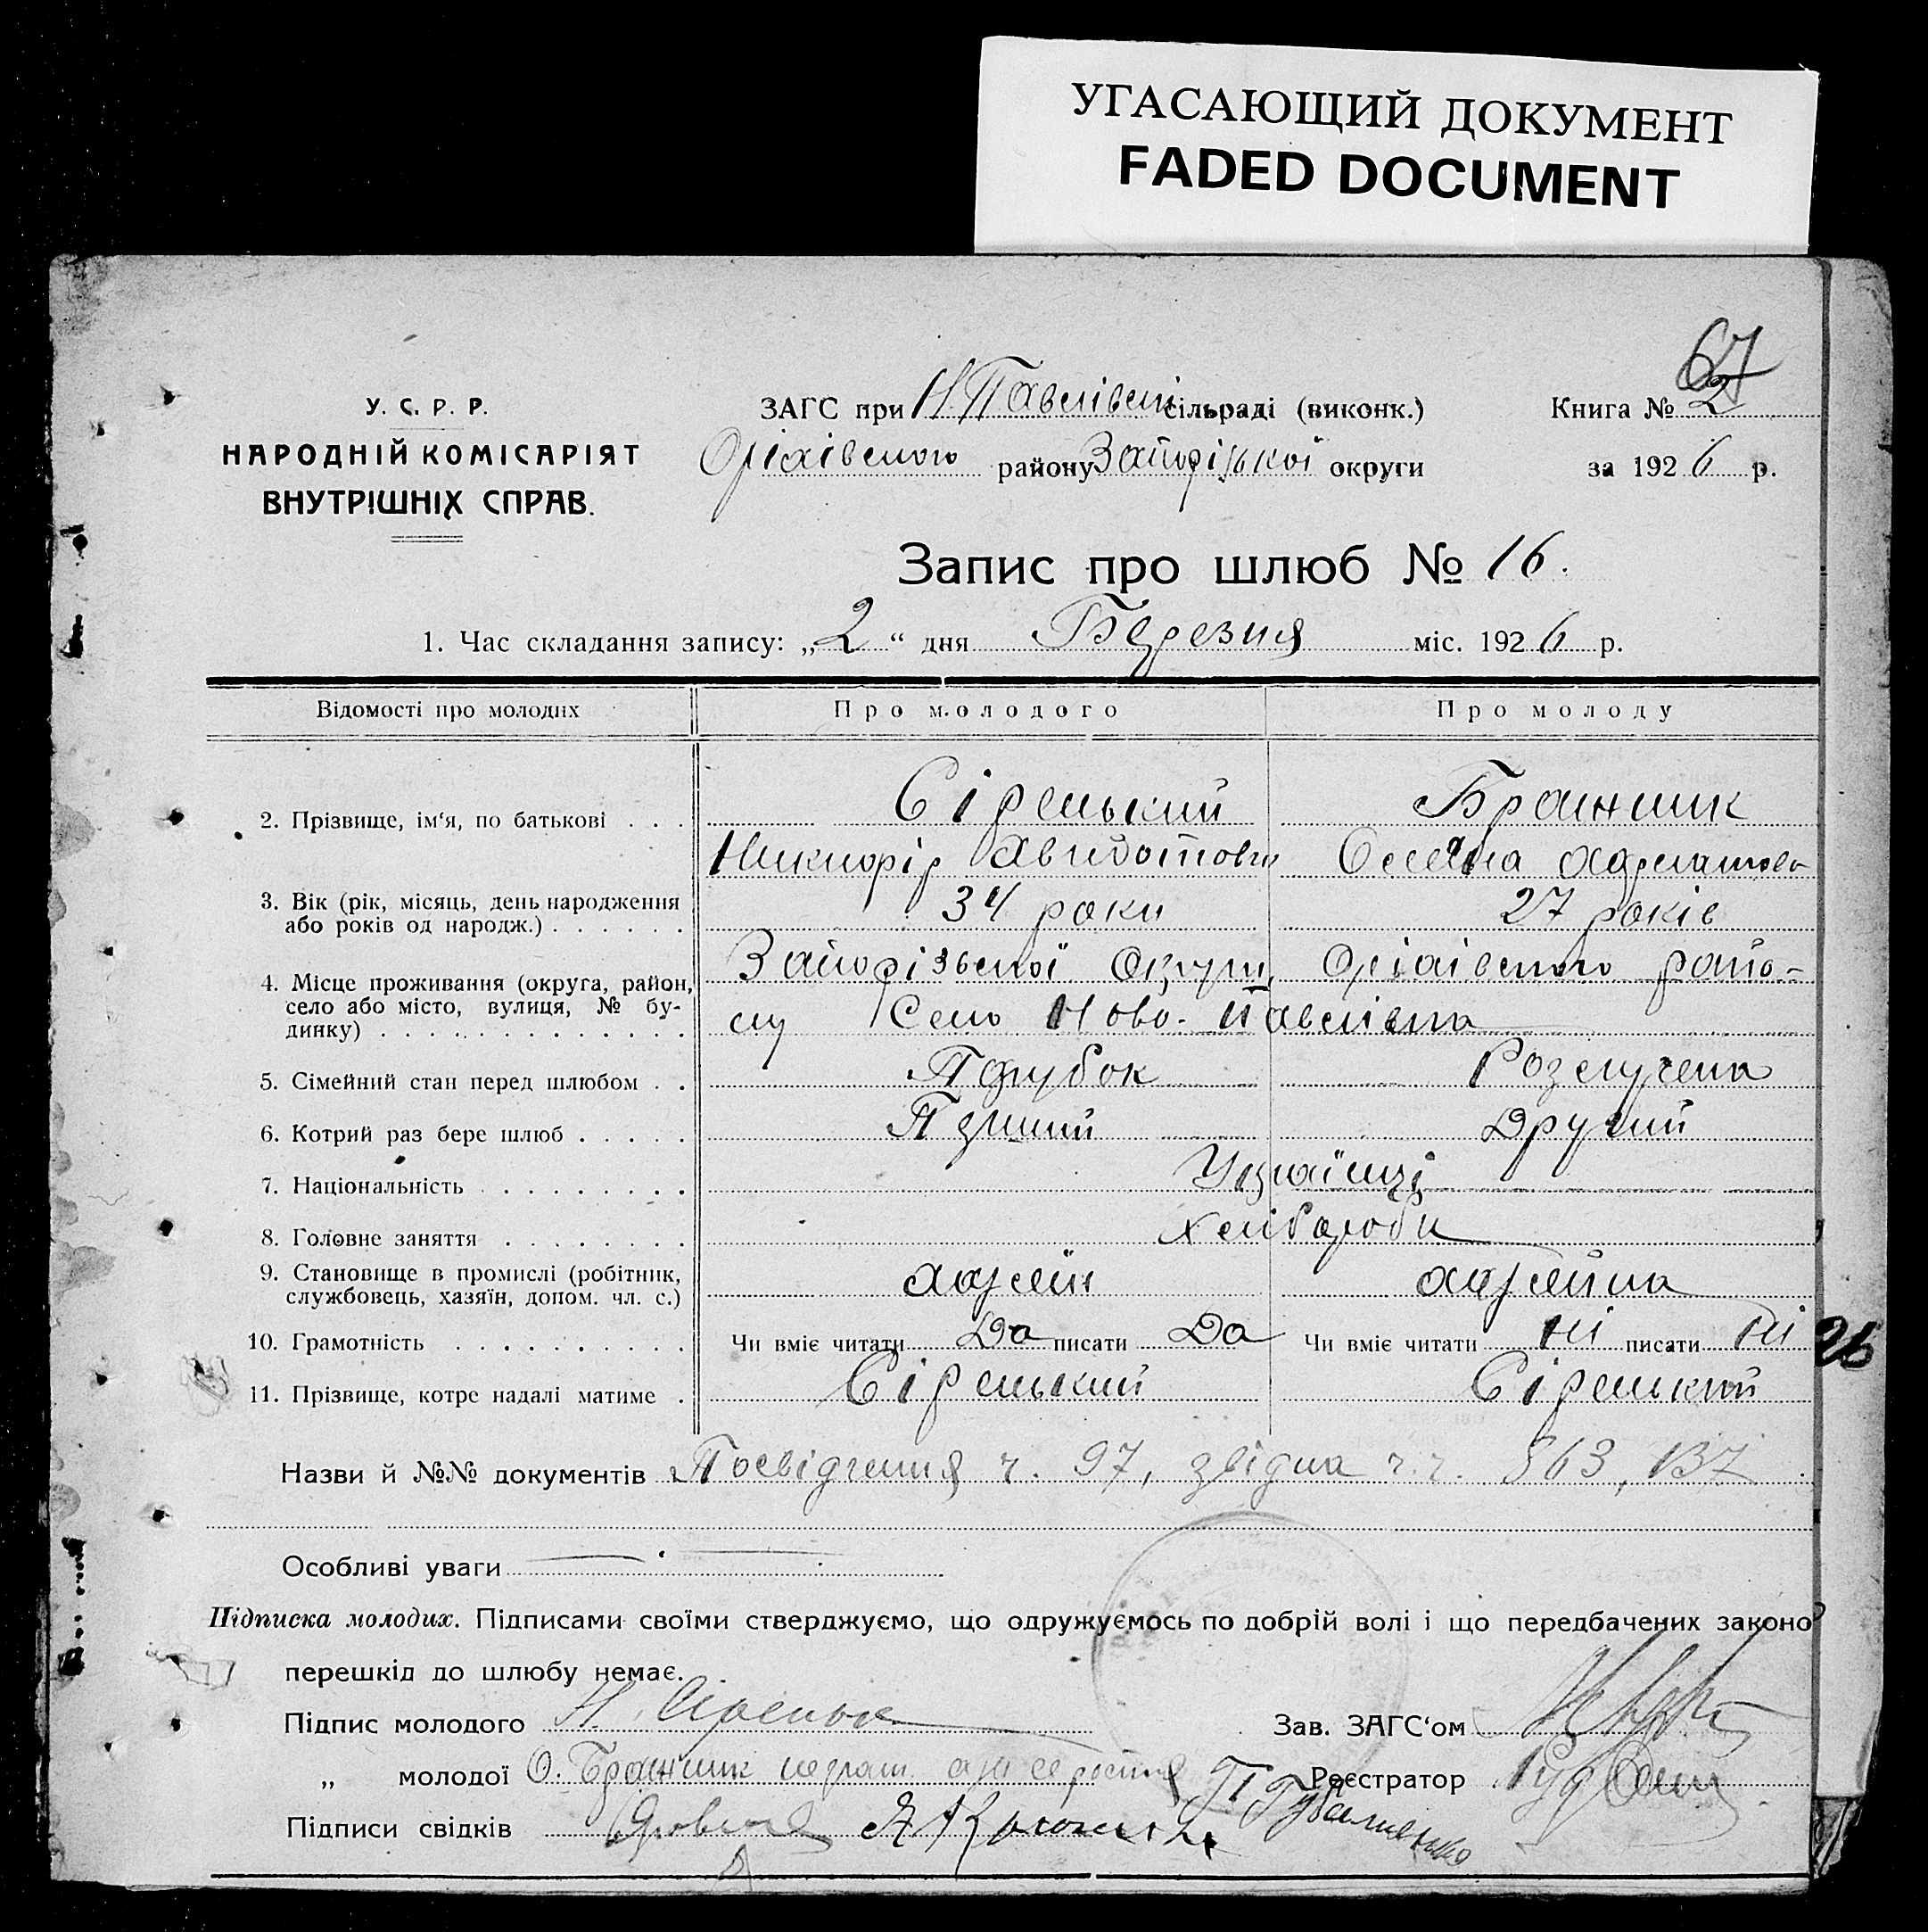 УГАСАЮЩИЙ ДОКУМЕНТ
FADED DOCUMENT
67
У. С. Р. Р.
НАРОДНІЙ КОМІСАРІЯТ
ВНУТРІШНІХ СПРАВ.
ЗАГС при Н. Павлівськ сільраді (виконк.) Книга № 2
Оріхівського району Запорізької округи за 1926 р.
Запис про шлюб № 16.
1. Час складання запису: „2“ дня Березня міс. 1926 р.
Відомості про молодих Про молодого Про молоду
2. Прізвище, ім‘я, по батькові . . . Сіренький Бражник
Никифір Оляна
3. Вік (рік, місяць, день народження або років од народж.) . . . . . . 34 роки 27 років
4. Місце проживання (округа, район, село або місто, вулиця, № будинку) . . . . . . . . . . . . . Запорізької Округи, Оріхівського райо-
ну Село Ново-Павлівка
5. Сімейний стан перед шлюбом . . Парубок Розлучена
6. Котрий раз бере шлюб . . . . . Перший Другий
7. Національність . . . . . . . . . Українці
8. Головне заняття . . . . . . . . Хлібороби
9. Становище в промислі (робітник, службовець, хазяїн, допом. чл. с.) хазяїн хазяйка
10. Грамотність . . . . . . . . . . Чи вміє читати Да писати Да Чи вміє читати ні писати ні
26
11. Прізвище, котре надалі матиме . Сіренький Сіренький
Назви й №№ документів Посвідчення ч. 97, звідка ч.ч. 563, 137
Особливі уваги
Підписка молодих. Підписами своїми стверджуємо, що одружуємось по добрій волі і що передбачених законо
перешкід до шлюбу немає.
Підпис молодого Н. Сіреньк Зав. ЗАГС‘ом
„ молодої О. Бражник неграм. Реєстратор
Підписи свідків П Губаленко